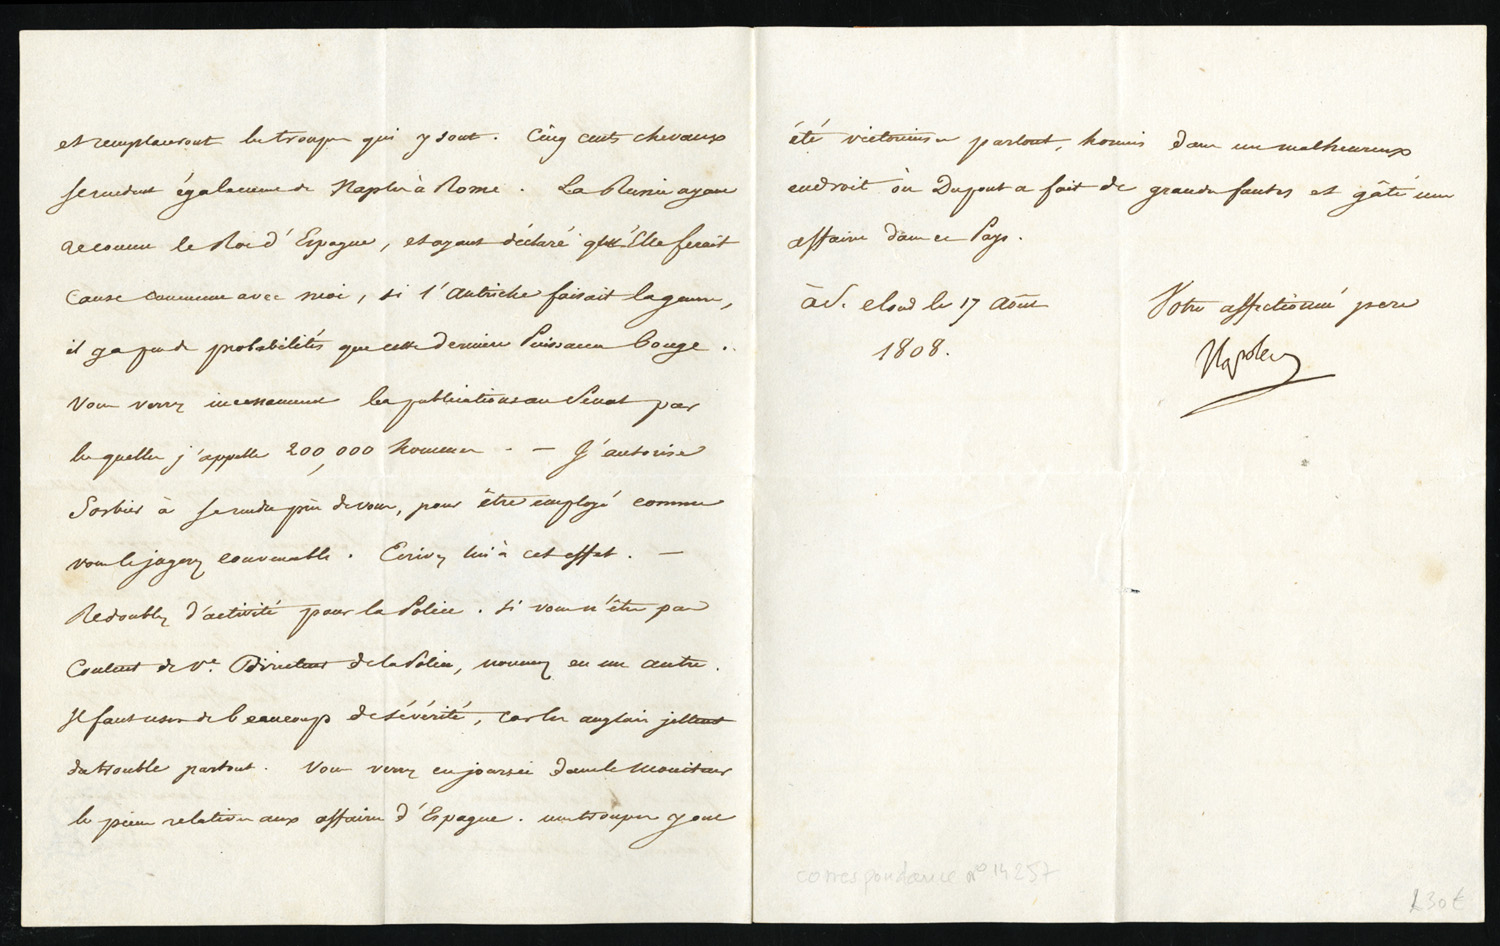 et remplaceront les troupes qui y sont. Cinq cents chevaux
se rendent également de Naples à Rome. La Russie ayant
reconnu le Roi d'Espagne, et ayant déclaré qu'Elle ferait
Cause commune avec moi, si l'Autriche faisait la guerre,
il y a peu de probabilités que cette derniere Puissance bouge.
Vous verrez incessamment les publications au Senat par
lesquelles j'appelle 200,000 hommes. — J'autorise
Sorbier à se rendre près de vous, pour être employé comme
vous le jugerez convenable. Ecrivez lui à cet effet. —
Redoublez d'activité pour la Police. Si vous n'êtes pas
Content de Ve. Directeur de la Police, nommez en un autre.
Il faut user de beaucoup de sévérité, car les anglais jettent
du trouble partout. Vous verrez en journée dans le Moniteur
les pièces relatives aux affaires d'Espagne. mes troupes y ont
été victorieuses partout, hormis dans un malheureux
endroit où Dupont a fait de grandes fautes et gâté mes
affaires dans ce Pays.
à St. Cloud le 17 Août
1808.
Votre affectionné pere
Napoleon
correspondance n° 14257